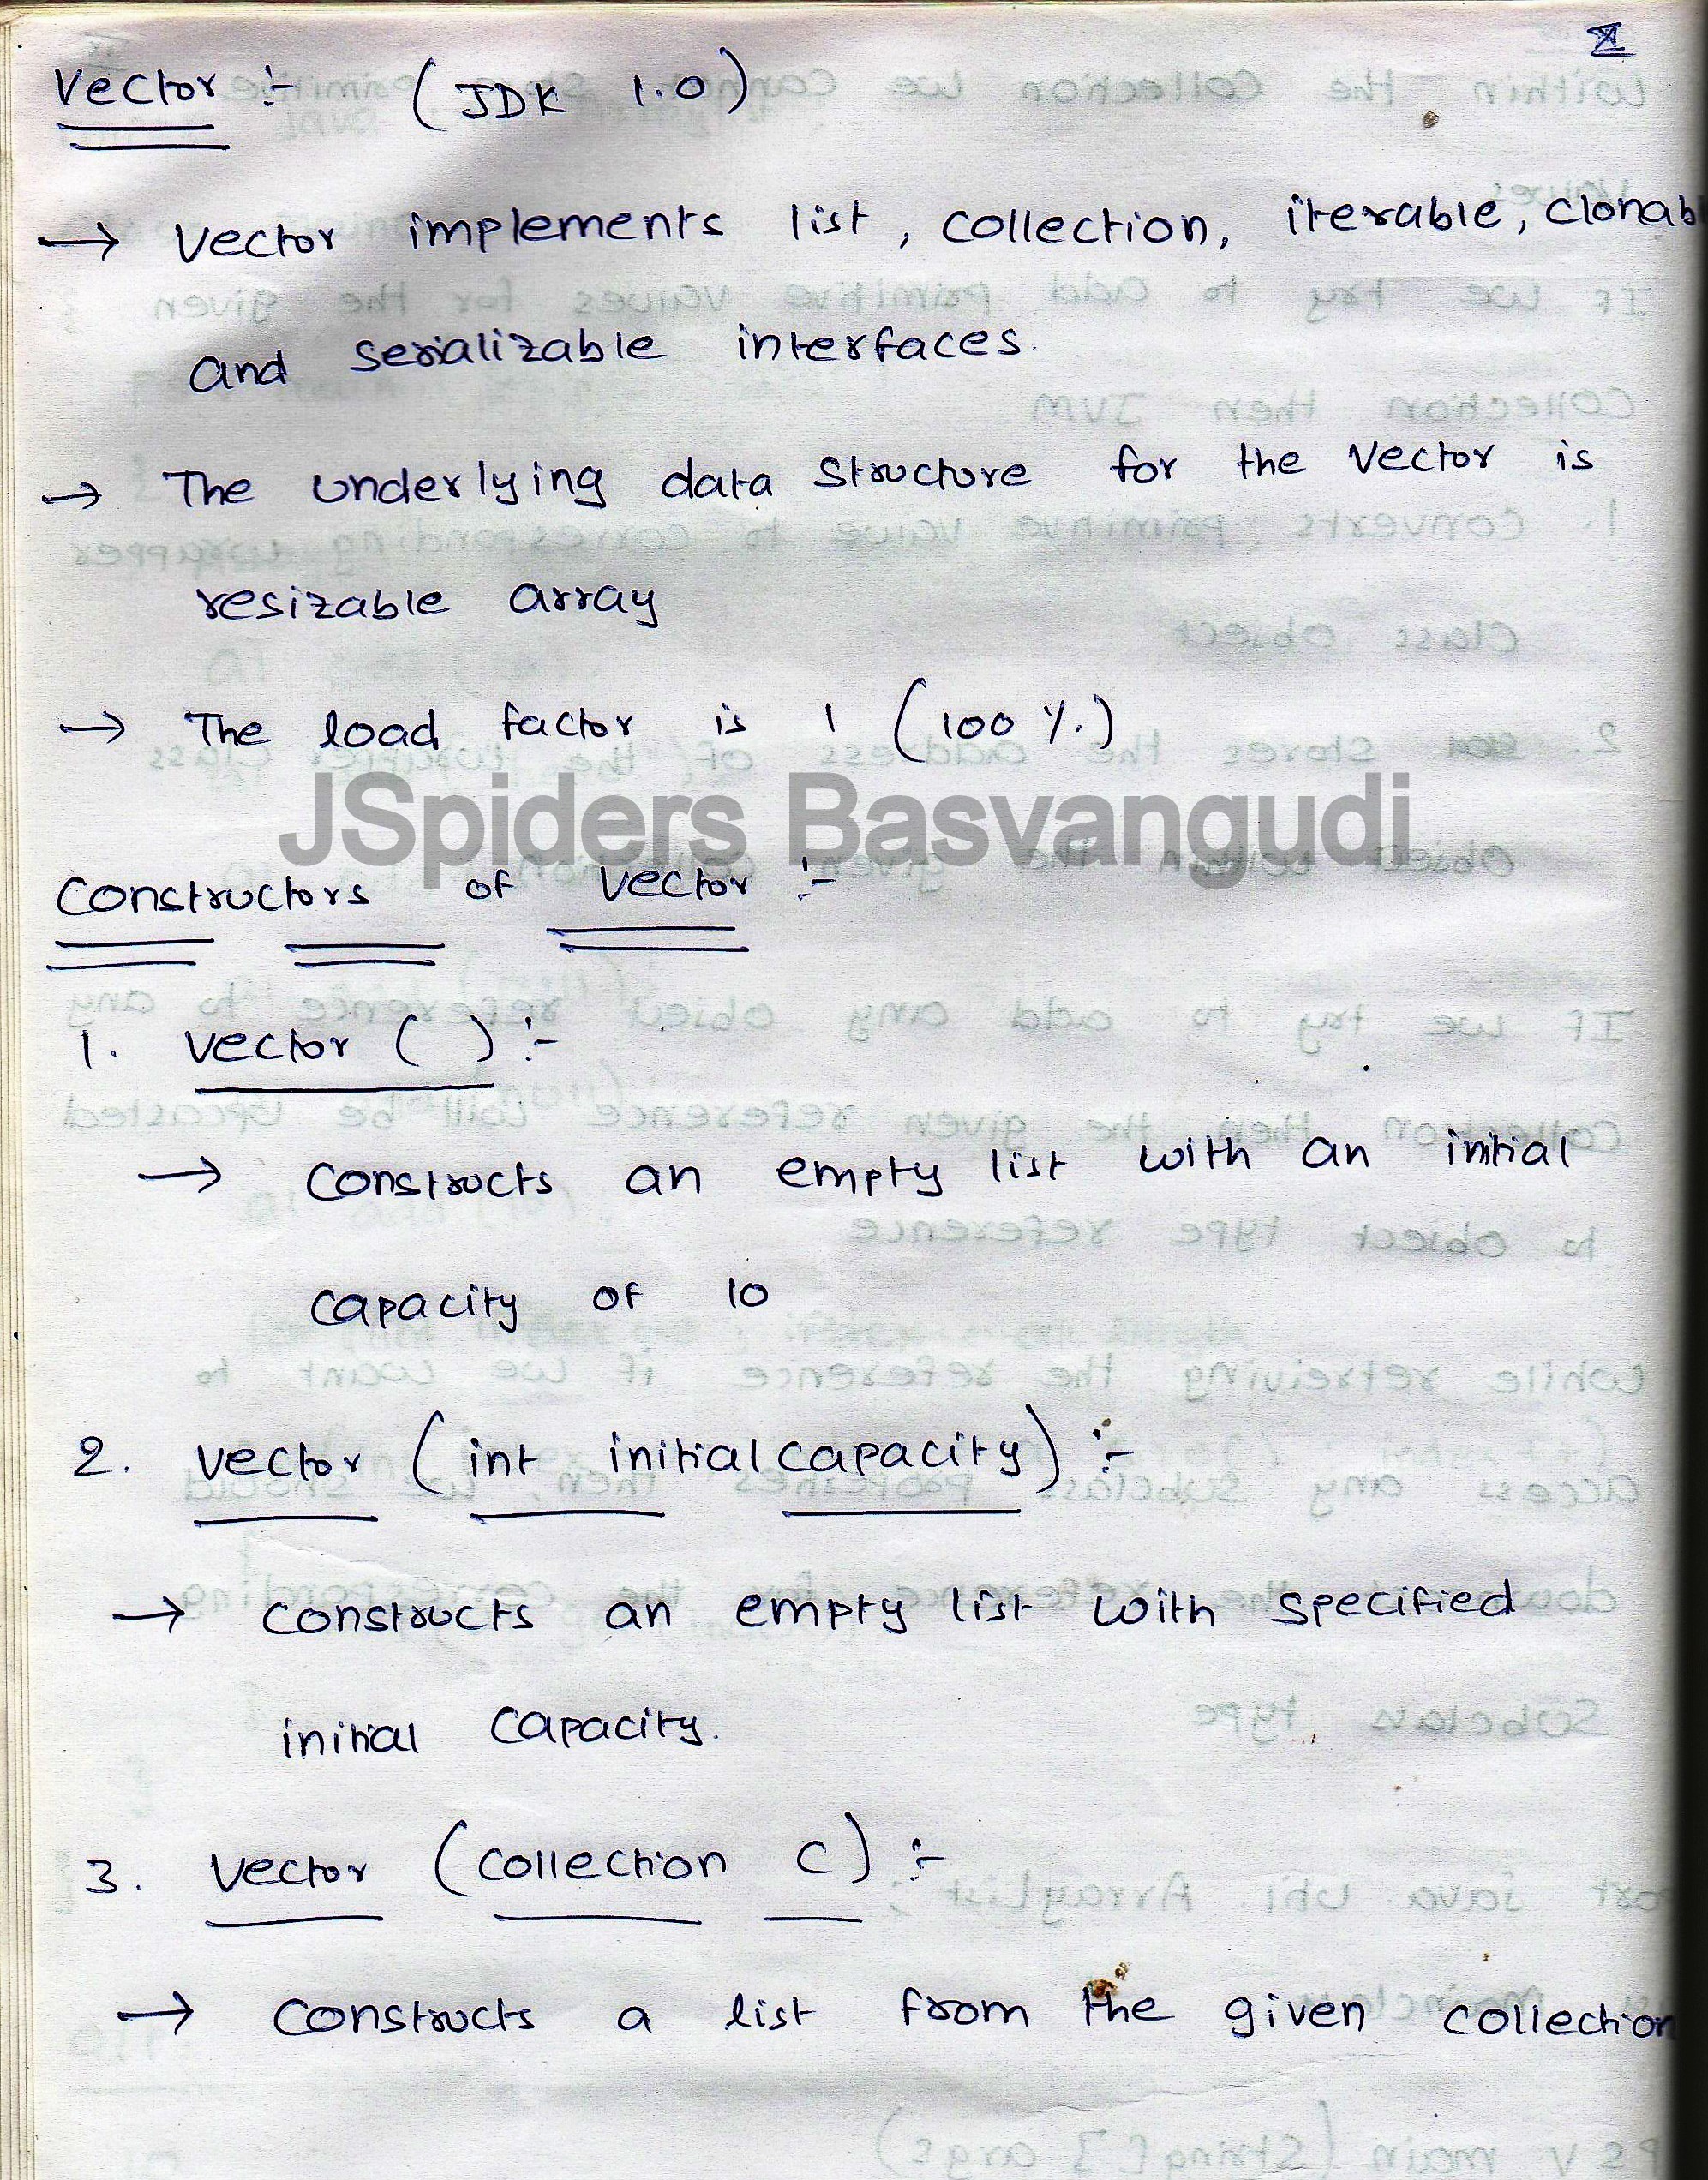 Vector :- (JDK 1.0)
→ Vector implements list, collection, iterable, clonab
and serializable interfaces.
→ The underlying data structure for the Vector is
resizable array
→ The load factor is 1 (100 %.)
JSpiders Basvangudi
Constructors of Vector :-
1. Vector ( ) :-
→ Constructs an empty list with an initial
capacity of 10
2. Vector (int initial capacity) :-
→ Constructs an empty list with specified
initial capacity.
3. Vector (collection c) :-
→ Constructs a list from the given collection